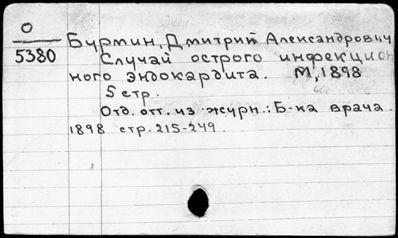 О
5380
Бурмин, Дмитрий Александрович
Случай острого инфекцион
ного эндокардита. М, 1898
5 стр.
Отд. отт. из журн.: Б-ка врача.
1898 стр. 215-249.